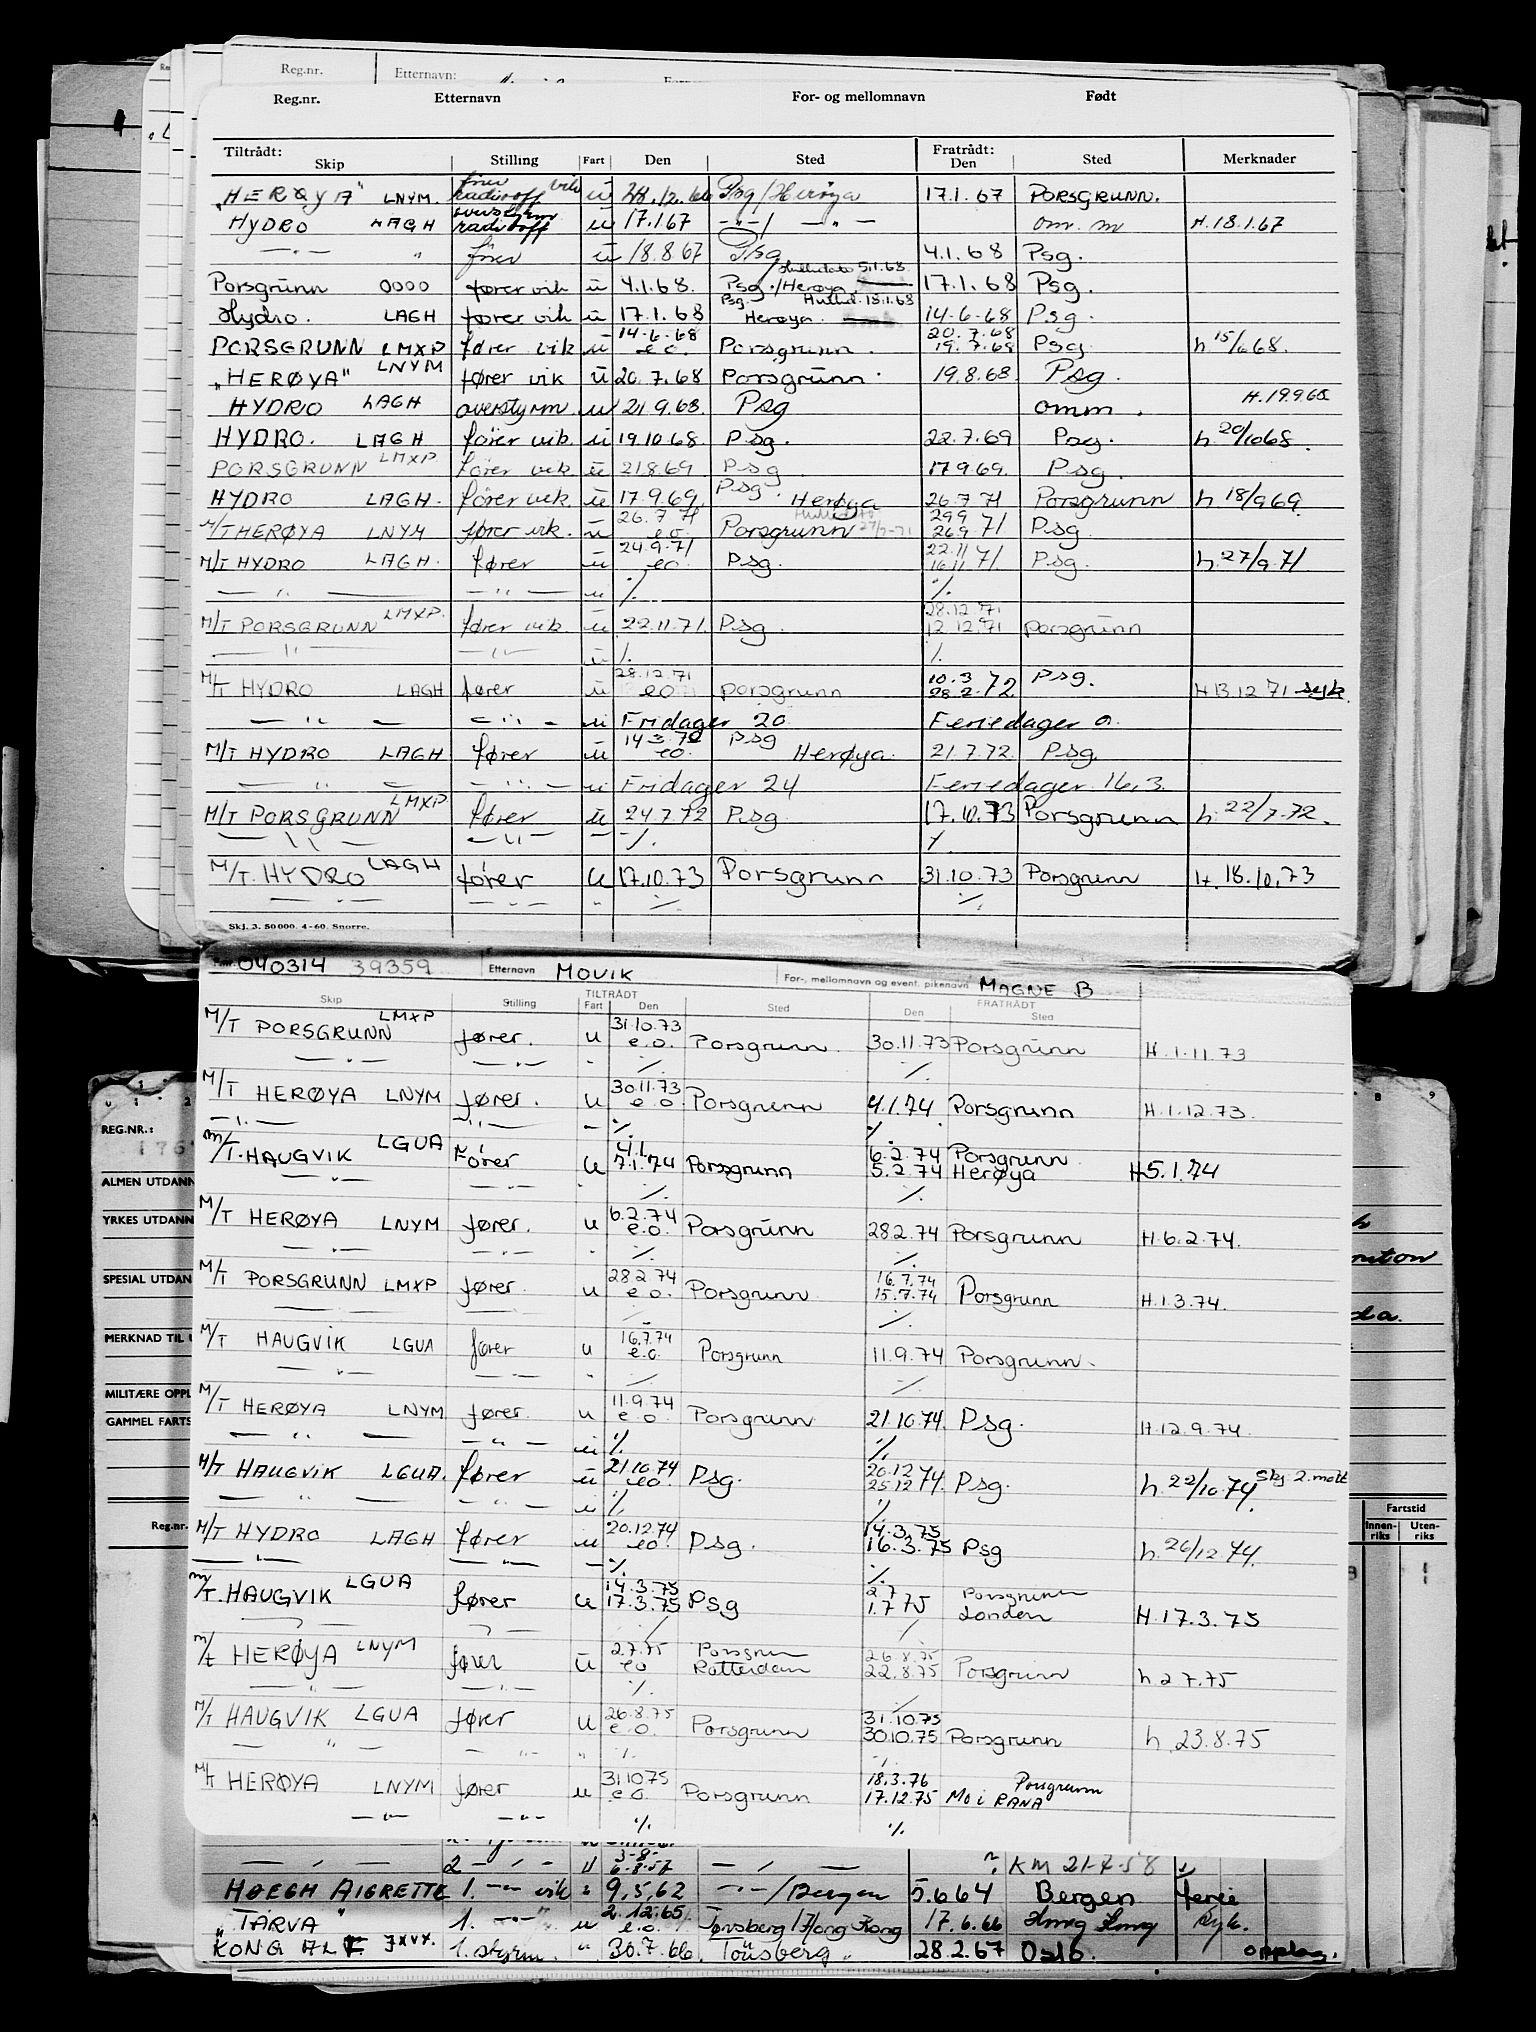 Reg.nr. Etternavn:
Reg.nr. Etternavn For- og mellomnavn Født
Tiltrådt: Fratrådt:
Skip Stilling Fart Den Sted Den Sted Merknader
"HERØYA" LNYM. ü Psg/Herøya 17.1.67 PORSGRUNN.
HYDRO LAGH overstyrm ü 17.1.67 -"-/ -"- om. m H.18.1.67
-"- " fører ü 18.8.67 Psg 4.1.68 Psg.
Porsgrunn OOOO fører vik ü 4.1.68. Psg./Herøya 5.1.68 17.1.68 Psg.
Hydro. LAGH fører vik ü 17.1.68 Psg. Herøya. 14-6-68 Psg.
14-6-68 20.7.68
PORSGRUNN LMXP fører vik ü e.o. Porsgrunn. 19.7.68 Psg h 15/6 68.
"HERØYA" LNYM fører vik ü 20.7.68 Porsgrunn. 19.8.68 Psg.
HYDRO LAGH overstyrm u 21.9.68. Psg omm. H.19.9.68
HYDRO. LAGH fører vik. ü 19.10.68. Psg. 22.7.69 Psg. h 20/10 68.
PORSGRUNN LMXP fører vik ü 21.8.69 Psg. 17.9.69. Psg.
HYDRO LAGH. fører vik. ü 17.9.69 Psg. Herøya 26.7.71 Porsgrunn h 18/9 69.
26.7.71 29.9
M/T HERØYA LNYM fører vik. ü e.o. Porsgrunn 27/7-71 26.9 71 Psg.
24.9.71 22.11
M/T HYDRO LAGH. fører ü e.o. Psg. 16.11 71. Psg. h. 27/9.71
-"- -"- ü %. %.
28.12.71
M/T PORSGRUNN LMXP. fører vik. ü 22.11.71. Psg. 12.12.71 porsgrunn
-"- -"- ü %. %.
28.12.71 10.3
M/T HYDRO LAGH fører ü e.o. porsgrunn 28.2. 72 Psg. H 13.12 71 syk.
-"- -"- ü Fridager 20 Feriedager 0.
14.3.72 Psg
M/T HYDRO LAGH fører ü e.o. Herøya. 21.7.72. Psg.
-"- -"- ü Fridager 24 Feriedager 16,3
M/T PORSGRUNN LMXP fører ü 24.7.72 Psg. 17.10.73 Porsgrunn h. 22/7-72.
-"- -"- - %. %.
M/T. HYDRO LAGH fører u 17.10.73 Porsgrunn 31.10.73 Porsgrunn H. 18.10.73
-"- -"- " %. %.
Skj. 3. 50 000. 4-60. Snorre.
040314 39359 Etternavn MOVIK For-, mellomnavn og event. pikenavn MAGNE B
TILTRÅDT FRATRÅDT
Skip Stilling Fart Den Sted Den Sted
31.10.73
M/T PORSGRUNN LMXP fører. u e.o. Porsgrunn. 30.11.73 Porsgrunn H.1.11.73
-"- -"- - %. %.
30.11.73
M/T HERØYA LNYM fører. u e.o Porsgrunn 4.1.74 Porsgrunn H.1.12.73.
-"- -"- - %. %.
4.1. 6.2.74 Porsgrunn.
M/T. HAUGVIK LGUA Fører u 7.1.74 Porsgrunn 5.2.74 Herøya H 5.1.74
-"- -"- %. %.
6.2.74
M/T HERØYA LNYM fører. u e.o. Porsgrunn 28.2.74 Porsgrunn H.6.2.74.
-"- -"- - %. %.
28.2.74 16.7.74
M/T PORSGRUNN LMXP fører. u e.o. Porsgrunn. 15.7.74 Porsgrunn H.1.3.74.
-"- -"- %. %.
16.7.74
M/T HAUGVIK LGUA fører u e.o. Porsgrunn 11.9.74 Porsgrunn.
-"- -"- %. %.
11.9.74
M/T HERØYA LNYM fører. u e.o. Porsgrunn 21.10.74. Psg. H.12.9.74.
-"- -"- ü %. %.
21.10.74 20.12
M/T HAUGVIK LGUA. fører ü e.o. Psg. 25.12 74. Psg. h 22/10.74. Skj 2. mott
-"- -"- ü %. %.
20.12.74 14.3.75
M/T HYDRO LAGH fører ü e.o. Psg. 16.3.75 Psg h 26/12 74.
-"- -"- - %. %.
14.3.75 2.7 Porsgrunn
M/T. HAUGVIK LGUA fører u 17.3.75 Psg 1.7 75 London H.17.3.75
2.7.75 26.8.75
M/T HERØYA LNYM fører ü e.o Rotterdam 22.8.75 Porsgrunn h 2 7.75
-"- -"- %.
26.8.75 31.10.75
M/T HAUGVIK LGUA fører u e.o. Porsgrunn 30.10.75 Porsgrunn h. 23.8.75
-"- -"- " %. %.
31.10.75 18.3.76 Porsgrunn
M/T HERØYA LNYM fører u e.o. Porsgrunn 17.12.75 Mo i RANA
-"- -"- %. %.
2 -"- u 6-8-57 -"- ? KM 21-7-58
HØEGH AIGRETTE 1. -"- vik " 9.5.62 -"-/Bergen 5.6.64 Bergen ferie
2.12.65
"TARVA" 1. -"- u e.o. Tønsberg/Hong Kong 17.6.66 Hong Kong syk.
KONG ALF JXVX. 1. styrm. " 30.7.66. Tönsberg. 28.2.67 Oslo. opplag.
REG.NR.:
ALMEN UTDANN
YRKES UTDANN
SPESIAL UTDAN
MERKNAD TIL
MILITÆRE OPPL
GAMMEL FARTS
Reg.nr.
Fartstid
Innen-riks Uten-riks